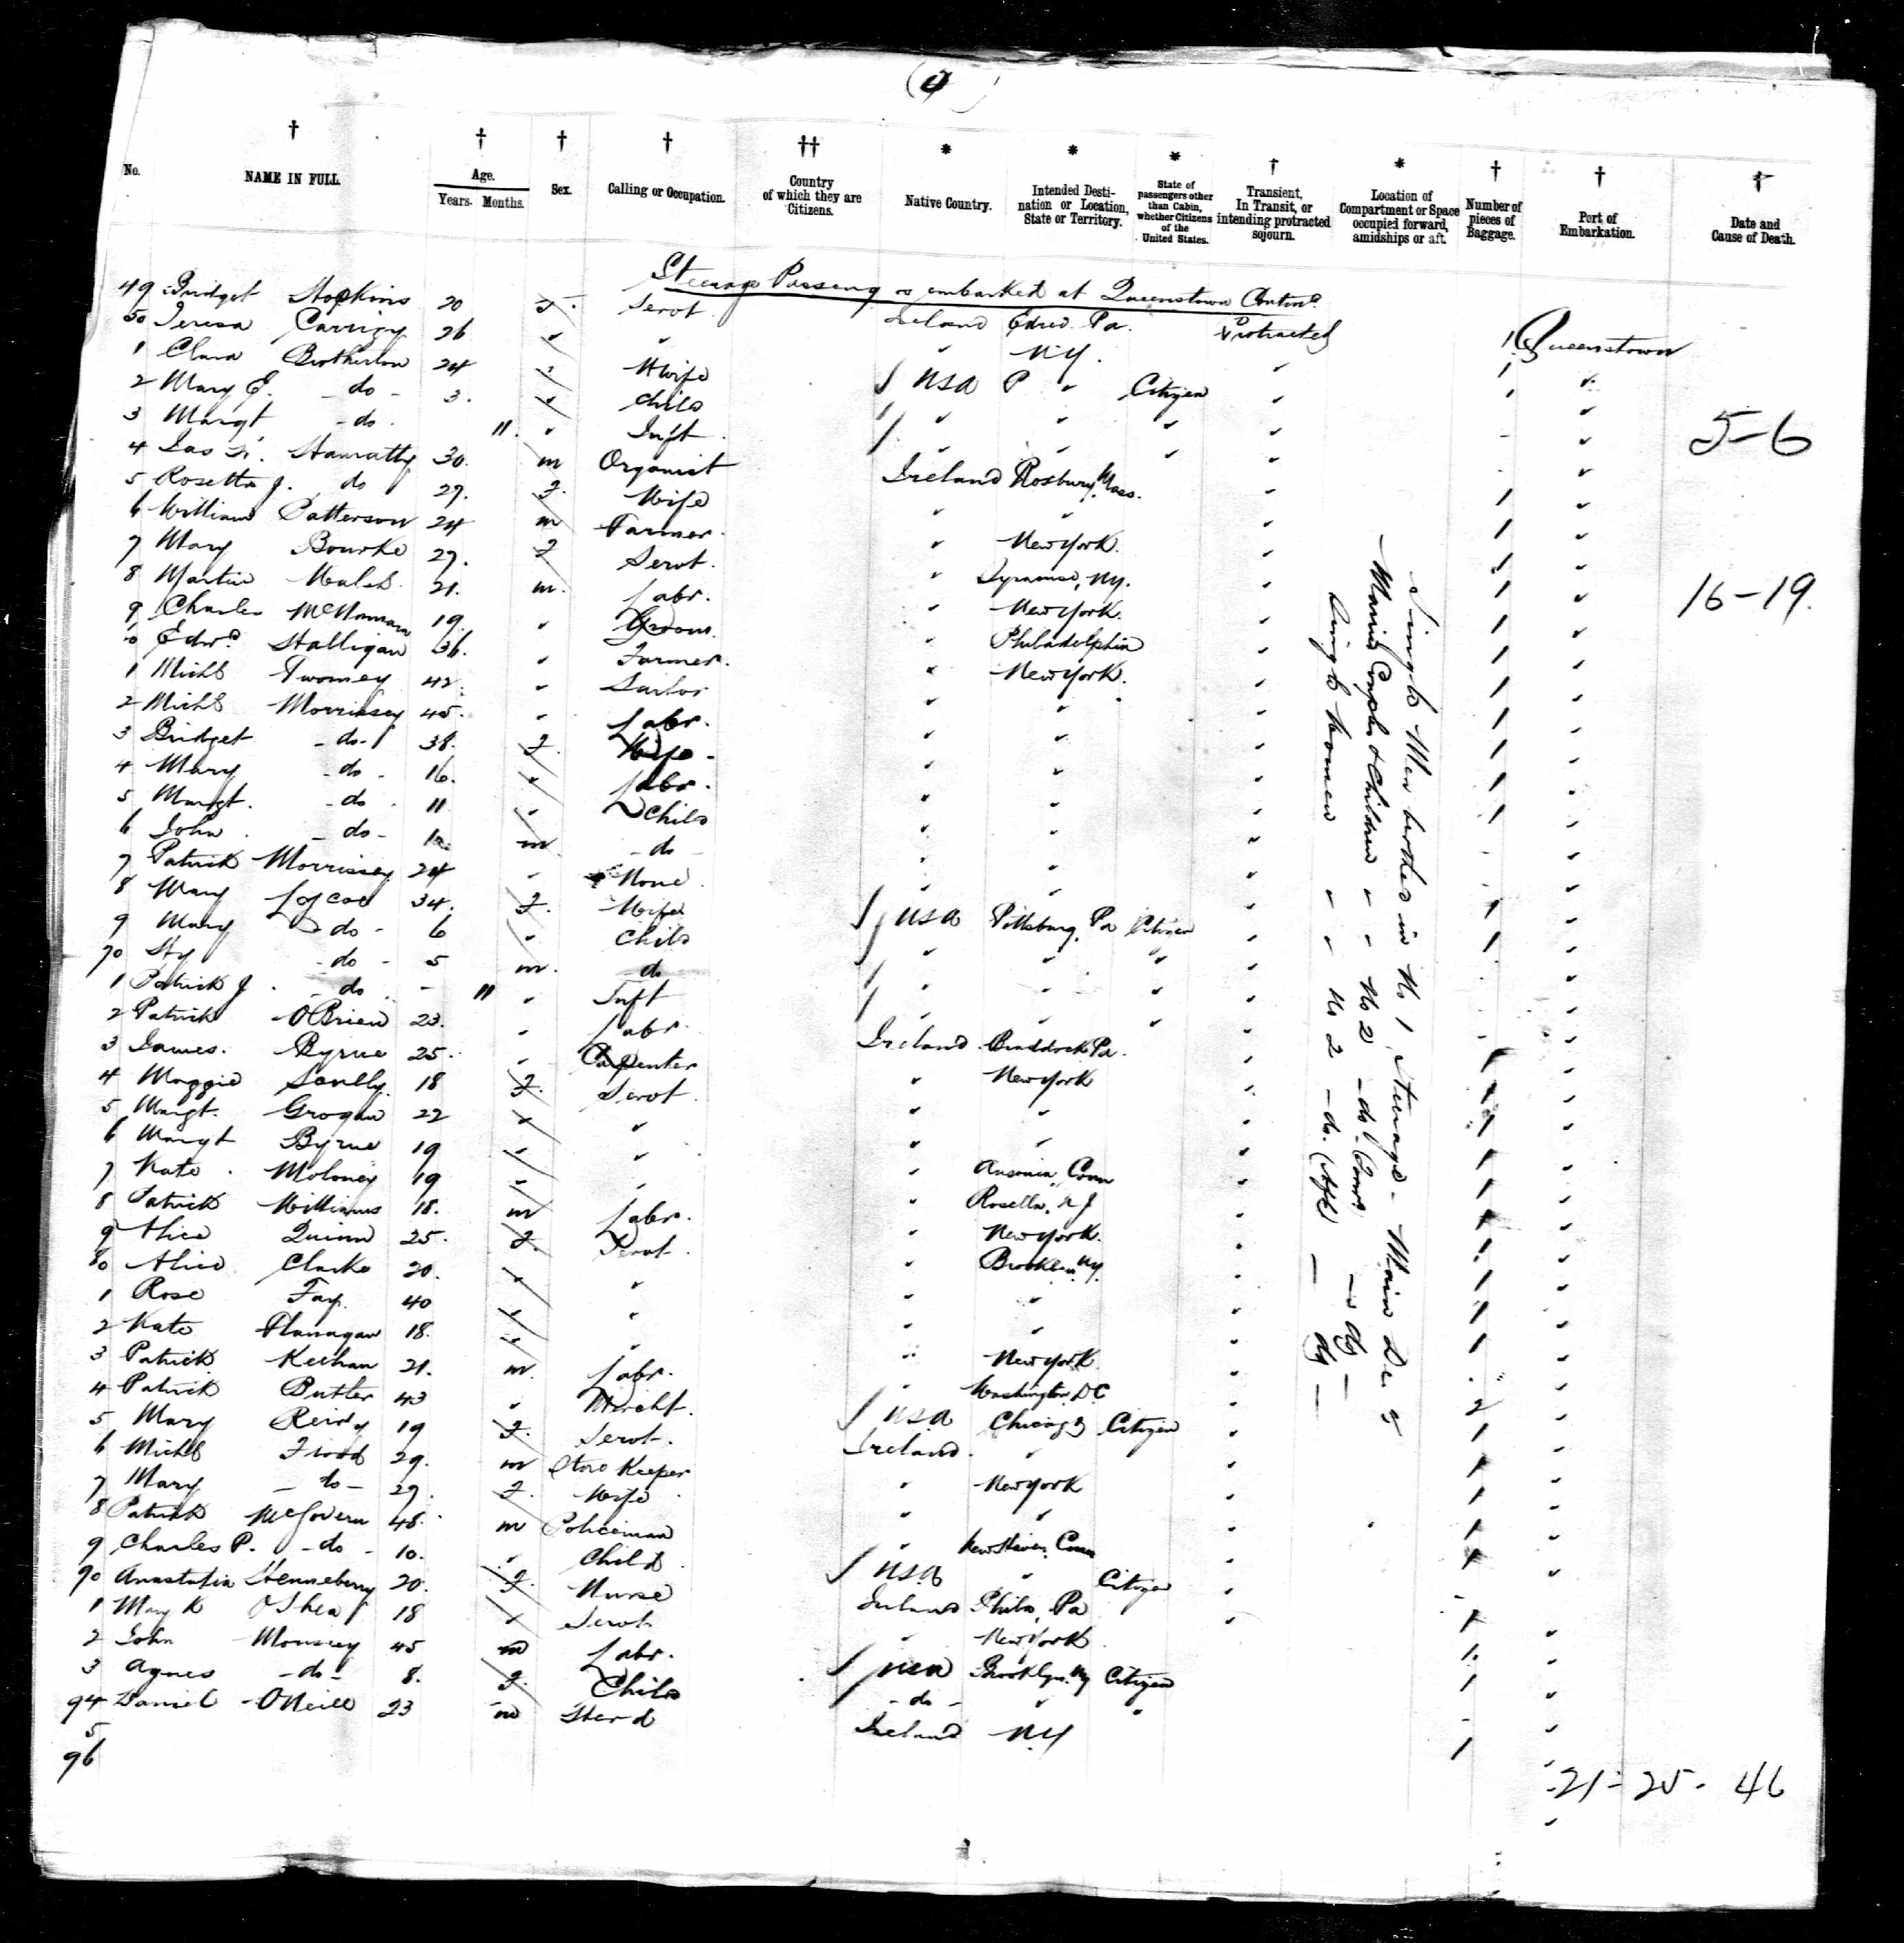 (6)
No. NAME IN FULL. Age. Years. Months. Sex. Calling or Occupation. Country of which they are Citizens. Native Country. Intended Destination or Location, State or Territory. State of passengers other than Cabin, whether Citizens of the United States. Transient, In Transit, or intending protracted sojourn. Location of Compartment or Space occupied forward, amidships or aft. Number of pieces of Baggage. Port of Embarkation. Date and Cause of Death.
Steerage Passengers embarked at Queenstown Contind
49 Bridget Hopkins 20 F. Servt Ireland Pa. Protracted 1 Queenstown
50 Teresa Carrigy 26 " " " N.Y. " 1 "
1 Clara Brotherton 24 " Wife USA " Citizen " 1 "
2 Mary E. -do- 3. " Child " " " " "
3 Margt -do- 11. " Inft " " " " "
4 Jas Hanratty 30. m Organist Ireland Roxbury, Mass. "
5 Rosetta J. do 29. F. Wife " " " 1 "
6 William Patterson 24 m Farmer " New York. " 1 "
7 Mary Bourke 27. F Servt. " Syracuse, NY. " 1 "
8 Martin Walsh 21. m. Labr. " New York. " 1 "
9 Charles McNamara 19. " Groom. " Philadelphia " 1 "
60 Edwd. Halligan 36. " Farmer. " New York. " 1 "
1 Michl Twomey 42. " Sailor " " " 1 "
2 Michl Morrissey 45. " Labr. " " " 1 "
3 Bridget -do- 38. F. Wife " " " 1 "
4 Mary -do- 16. " Labr. " " " 1 "
5 Margt. -do- 11 " Child " " " 1 "
6 John -do- 10. m -do- " " " "
7 Patrick Morrissey 24 " None " " " "
8 Mary 34. F. Wife USA Pittsburg, Pa Citizen " 1 "
9 Mary do- 6 " Child " " " " 1 "
70 Hy -do- 5 m. -do " " " " "
1 Patrick J. -do- - 11 " Inft " " " " "
2 Patrick O'Brien 23. " Labr. Ireland Braddock Pa. " 1 "
3 James. Byrne 25. " Carpenter " New York " 1 "
4 Maggie Scully 18 F. Servt. " " " 1 "
5 Margt. Grogan 22 " " " " " 1 "
6 Margt Byrne 19 " " " Ansonia, Conn " 1 "
7 Kate Moloney 19 " " " Rosella, NJ " 1 "
8 Patrick Williams 18. m Labr. " New York. " 1 "
9 Alice Quinn 25. F. Servt. " Brooklyn NY. " 1 "
80 Alice Clarke 20. " " " " " 1 "
1 Rose Fay. 40 " " " " " 1 "
2 Kate Flanagan 18. " " " New York " 1 "
3 Patrick Keehan 21. m. Labr. " Washington, DC " "
4 Patrick Butler 43 " Mercht. USA Chicago Citizen " 2 "
5 Mary Reidy 19 F. Servt. Ireland " " 1 "
6 Michl Flood 29. m Store Keeper " New York " 1 "
7 Mary -do- 27. F. Wife " " " 1 "
8 Patrick McGovern 48. m Policeman " New Haven, Conn " 1 "
9 Charles P. -do- 10. " Child USA " Citizen " 1 "
90 Anastatia Henneberry 20. F. Nurse Ireland Phila, Pa " "
1 Mary K O'Shea 18 " Servt. " New York " 1 "
2 John 45 m Labr. USA Brooklyn, Ny Citizen 1. "
3 Agnes -do- 8. F. Child -do- " " 1 "
94 Daniel O'Neill 23 m Ireland N.Y 1 "
5
96
Single Men berthed in No 1 Steerage - Main Dk.
Married Couples & Children " " No 2 -do- - do -
Single Women " " No 2 -do. (Aft) - do -
5-6
16-19.
21-25-46